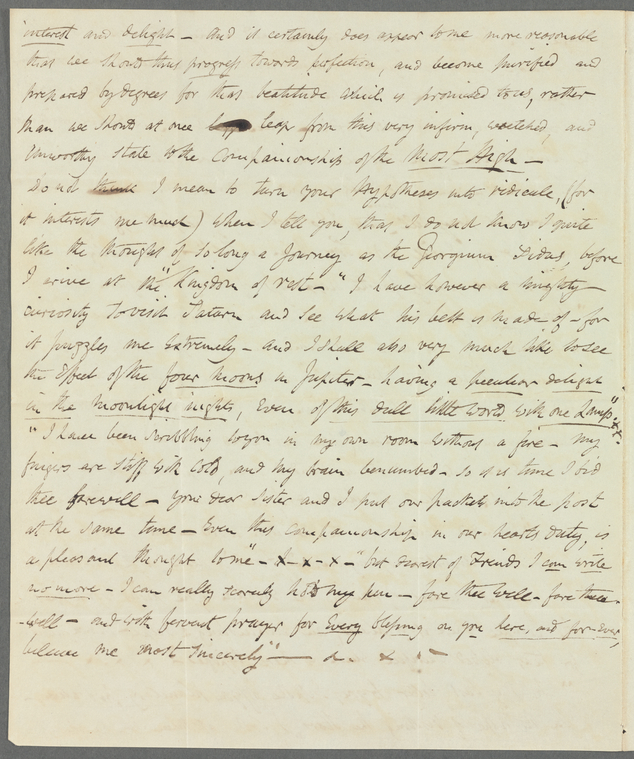 interest and delight – and it certainly does appear to me more reasonable
that we should thus progress towards perfection, and become purified and
prepared by degrees for that beatitude which is promised to us, rather
than we should at once leap from this very infirm, wretched, and
unworthy state to the companionship of the Most High –
Do not think I mean to turn your Hypotheses into ridicule, (for
it interests me much) when I tell you, that I do not know I quite
like the thought of so long a Journey as the Georgium Sidus, before
I arive at the "Kingdom of rest –" I have however a mighty
curiosity to visit Saturn and see what his belt is made of – for
it puzzles me extremely – and I shall also very much like to see
the effect of the four moons in Jupiter – having a peculiar delight
in the moonlight nights, even of this dull little world with one Lamp" x x.
"I have been scribbling to you in my own room without a fire – my
fingers are stiff with cold, and my brain benumbed – so it is time I bid
thee farewell – your dear Sister and I put our packets into the post
at the same time – Even this companionship in our hearts duty, is
a pleasant thought to me" – x – x – x – "but dearest of Friends I can write
no more – I can really scarcely hold my pen – fare thee well – fare thee
-well – and with fervent prayer for Every blessing on you here, and for-ever,
believe me most sincerely" –